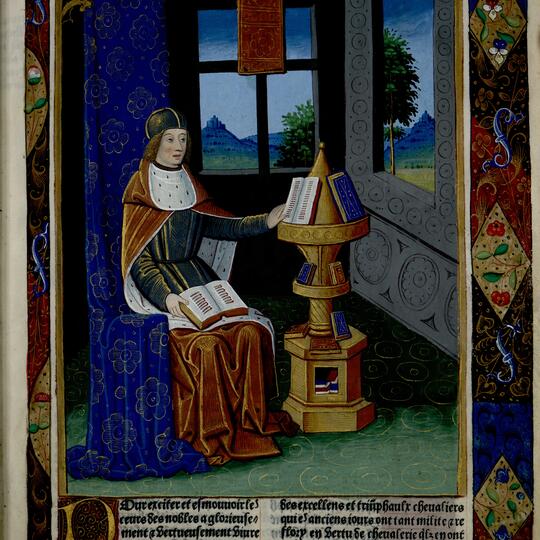 POur exciter et esmouuoir les
ceurs des nobles a glorieuse-
ment & vertueusement viure
des excellens et triũphaulx cheualiers
qui es anciens iours ont tant milite & re
flory en vertu de cheualerie qlz en ont